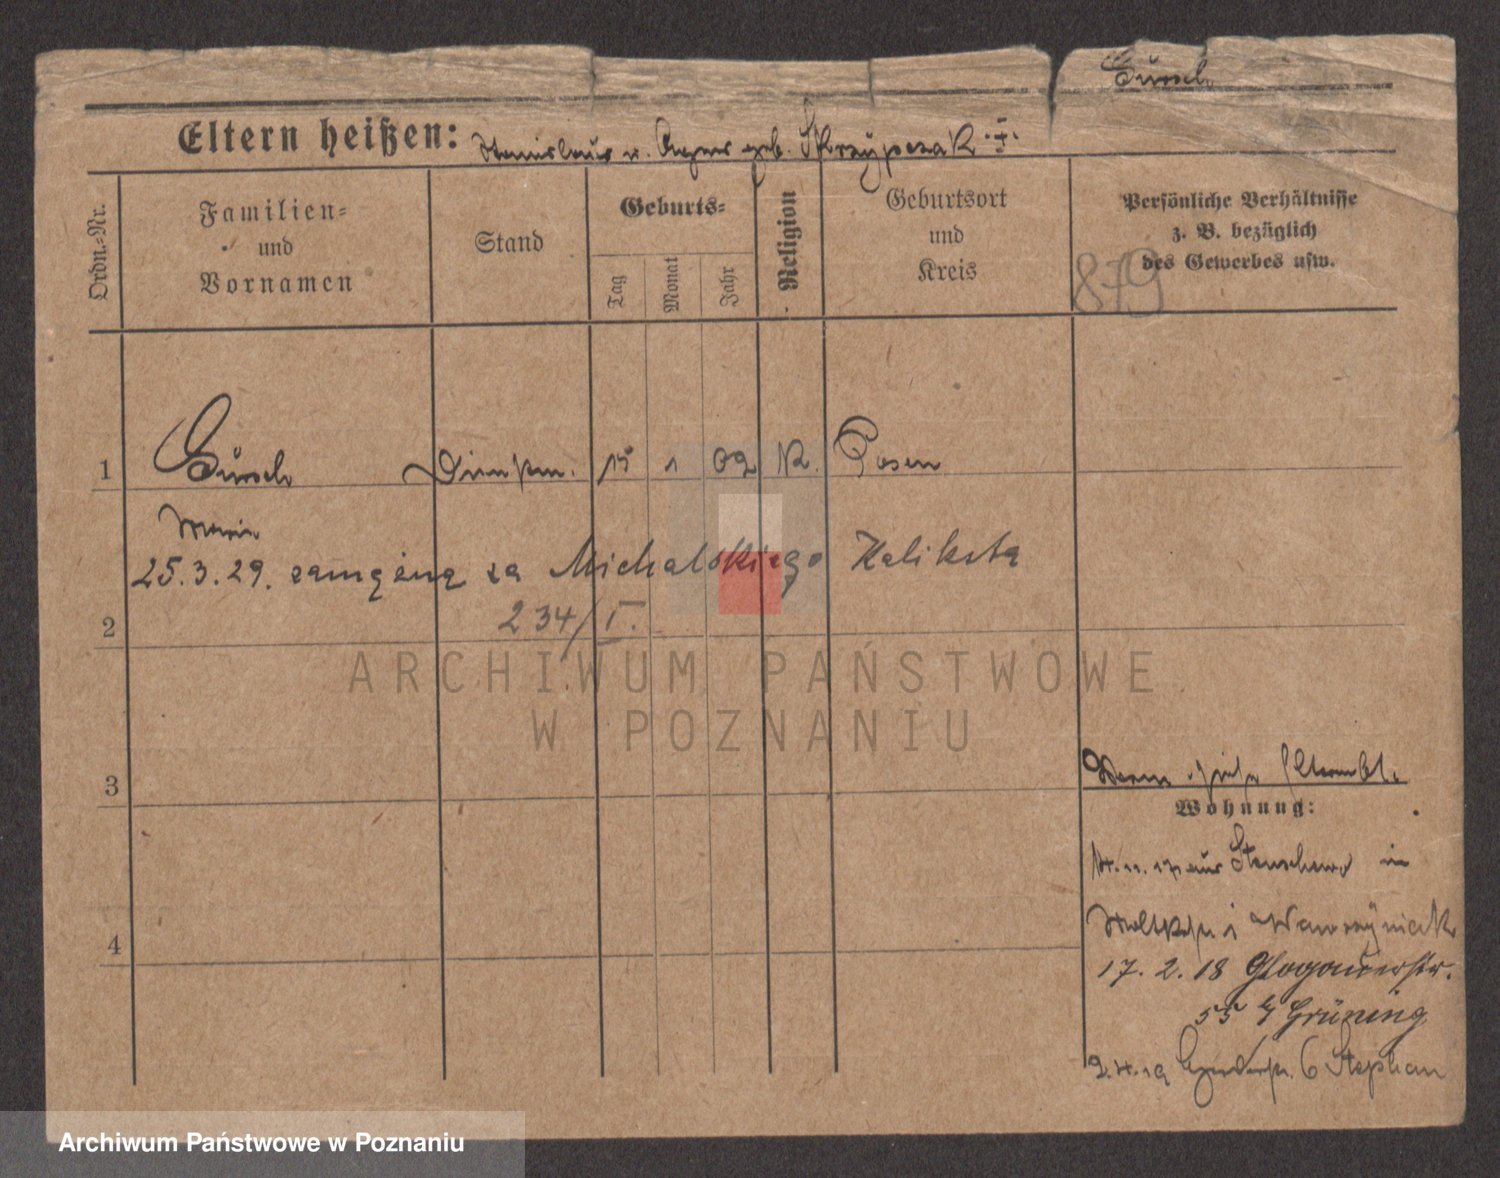 Gürsch
Eltern heißen: Stanislaus u. Agnes geb. Skrzypczak
Ordn.-Nr.
Familien-
und
Vornamen
Stand
Geburts-
Tag
Monat
Jahr
Religion
Geburtsort
und
Kreis
Persönliche Verhältnisse
z. B. bezüglich
des Gewerbes usw.
879
1 Gürsch Dienstm. 15 1 02 K. Posen
Marie
25.3.29. zamężna za Michalskiego Kaliksta
2 234/I.
3
Wohnung:
aus Stenschewo in
Wawrzyniak
4
17. 2. 18 Glogauerstr.
55 Grüning
2.4.19 6 Stephan
ARCHIWUM PAŃSTWOWE
W POZNANIU
Archiwum Państwowe w Poznaniu